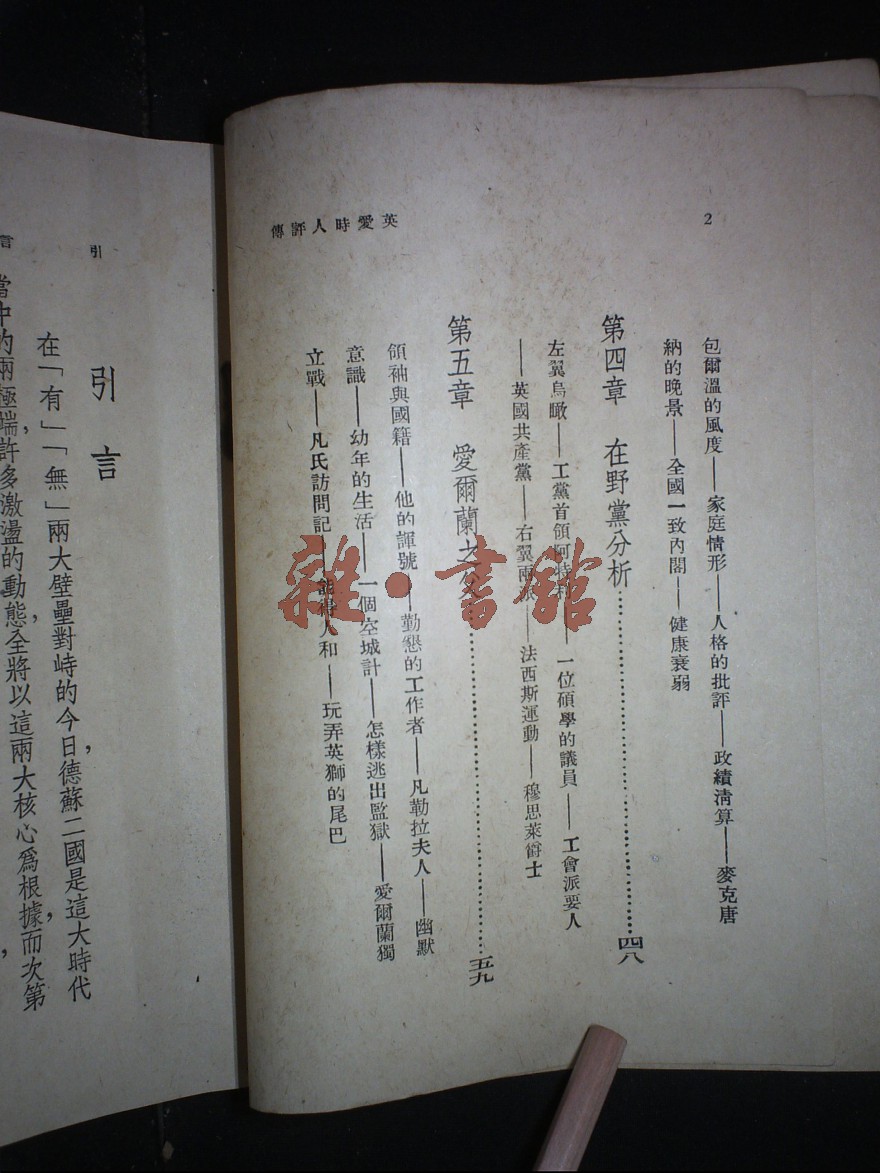 2
英愛時人評傳
包爾溫的風度——家庭情形——人格的批評——政績清算——麥克唐
納的晚景——全國一致內閣——健康衰弱
第四章 在野黨分析……………………四八
左翼鳥瞰——工黨首領阿特利——一位碩學的議員——工會派要人
——英國共產黨——右翼兩派——法西斯運動——穆思萊爵士
第五章 愛爾蘭之父……………………五九
領袖與國籍——他的諢號——勤懇的工作者——凡勒拉夫人——幽默
意識——幼年的生活——一個空城計——怎樣逃出監獄——愛爾蘭獨
立戰——凡氏訪問記——能得人和——玩弄英獅的尾巴
雜·書館
引
言
引言
在「有」「無」兩大壁壘對峙的今日，德蘇二國是這大時代
當中的兩極端，許多激盪的動態，全將以這兩大核心爲根據，而次第